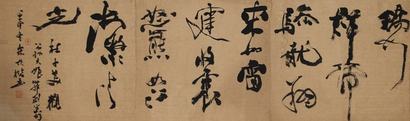 矯如
群帝
驂龍翔
来如雷
霆收震
怒罷如江
海凝清
光
杜子美觀
公孫大娘舞劍器